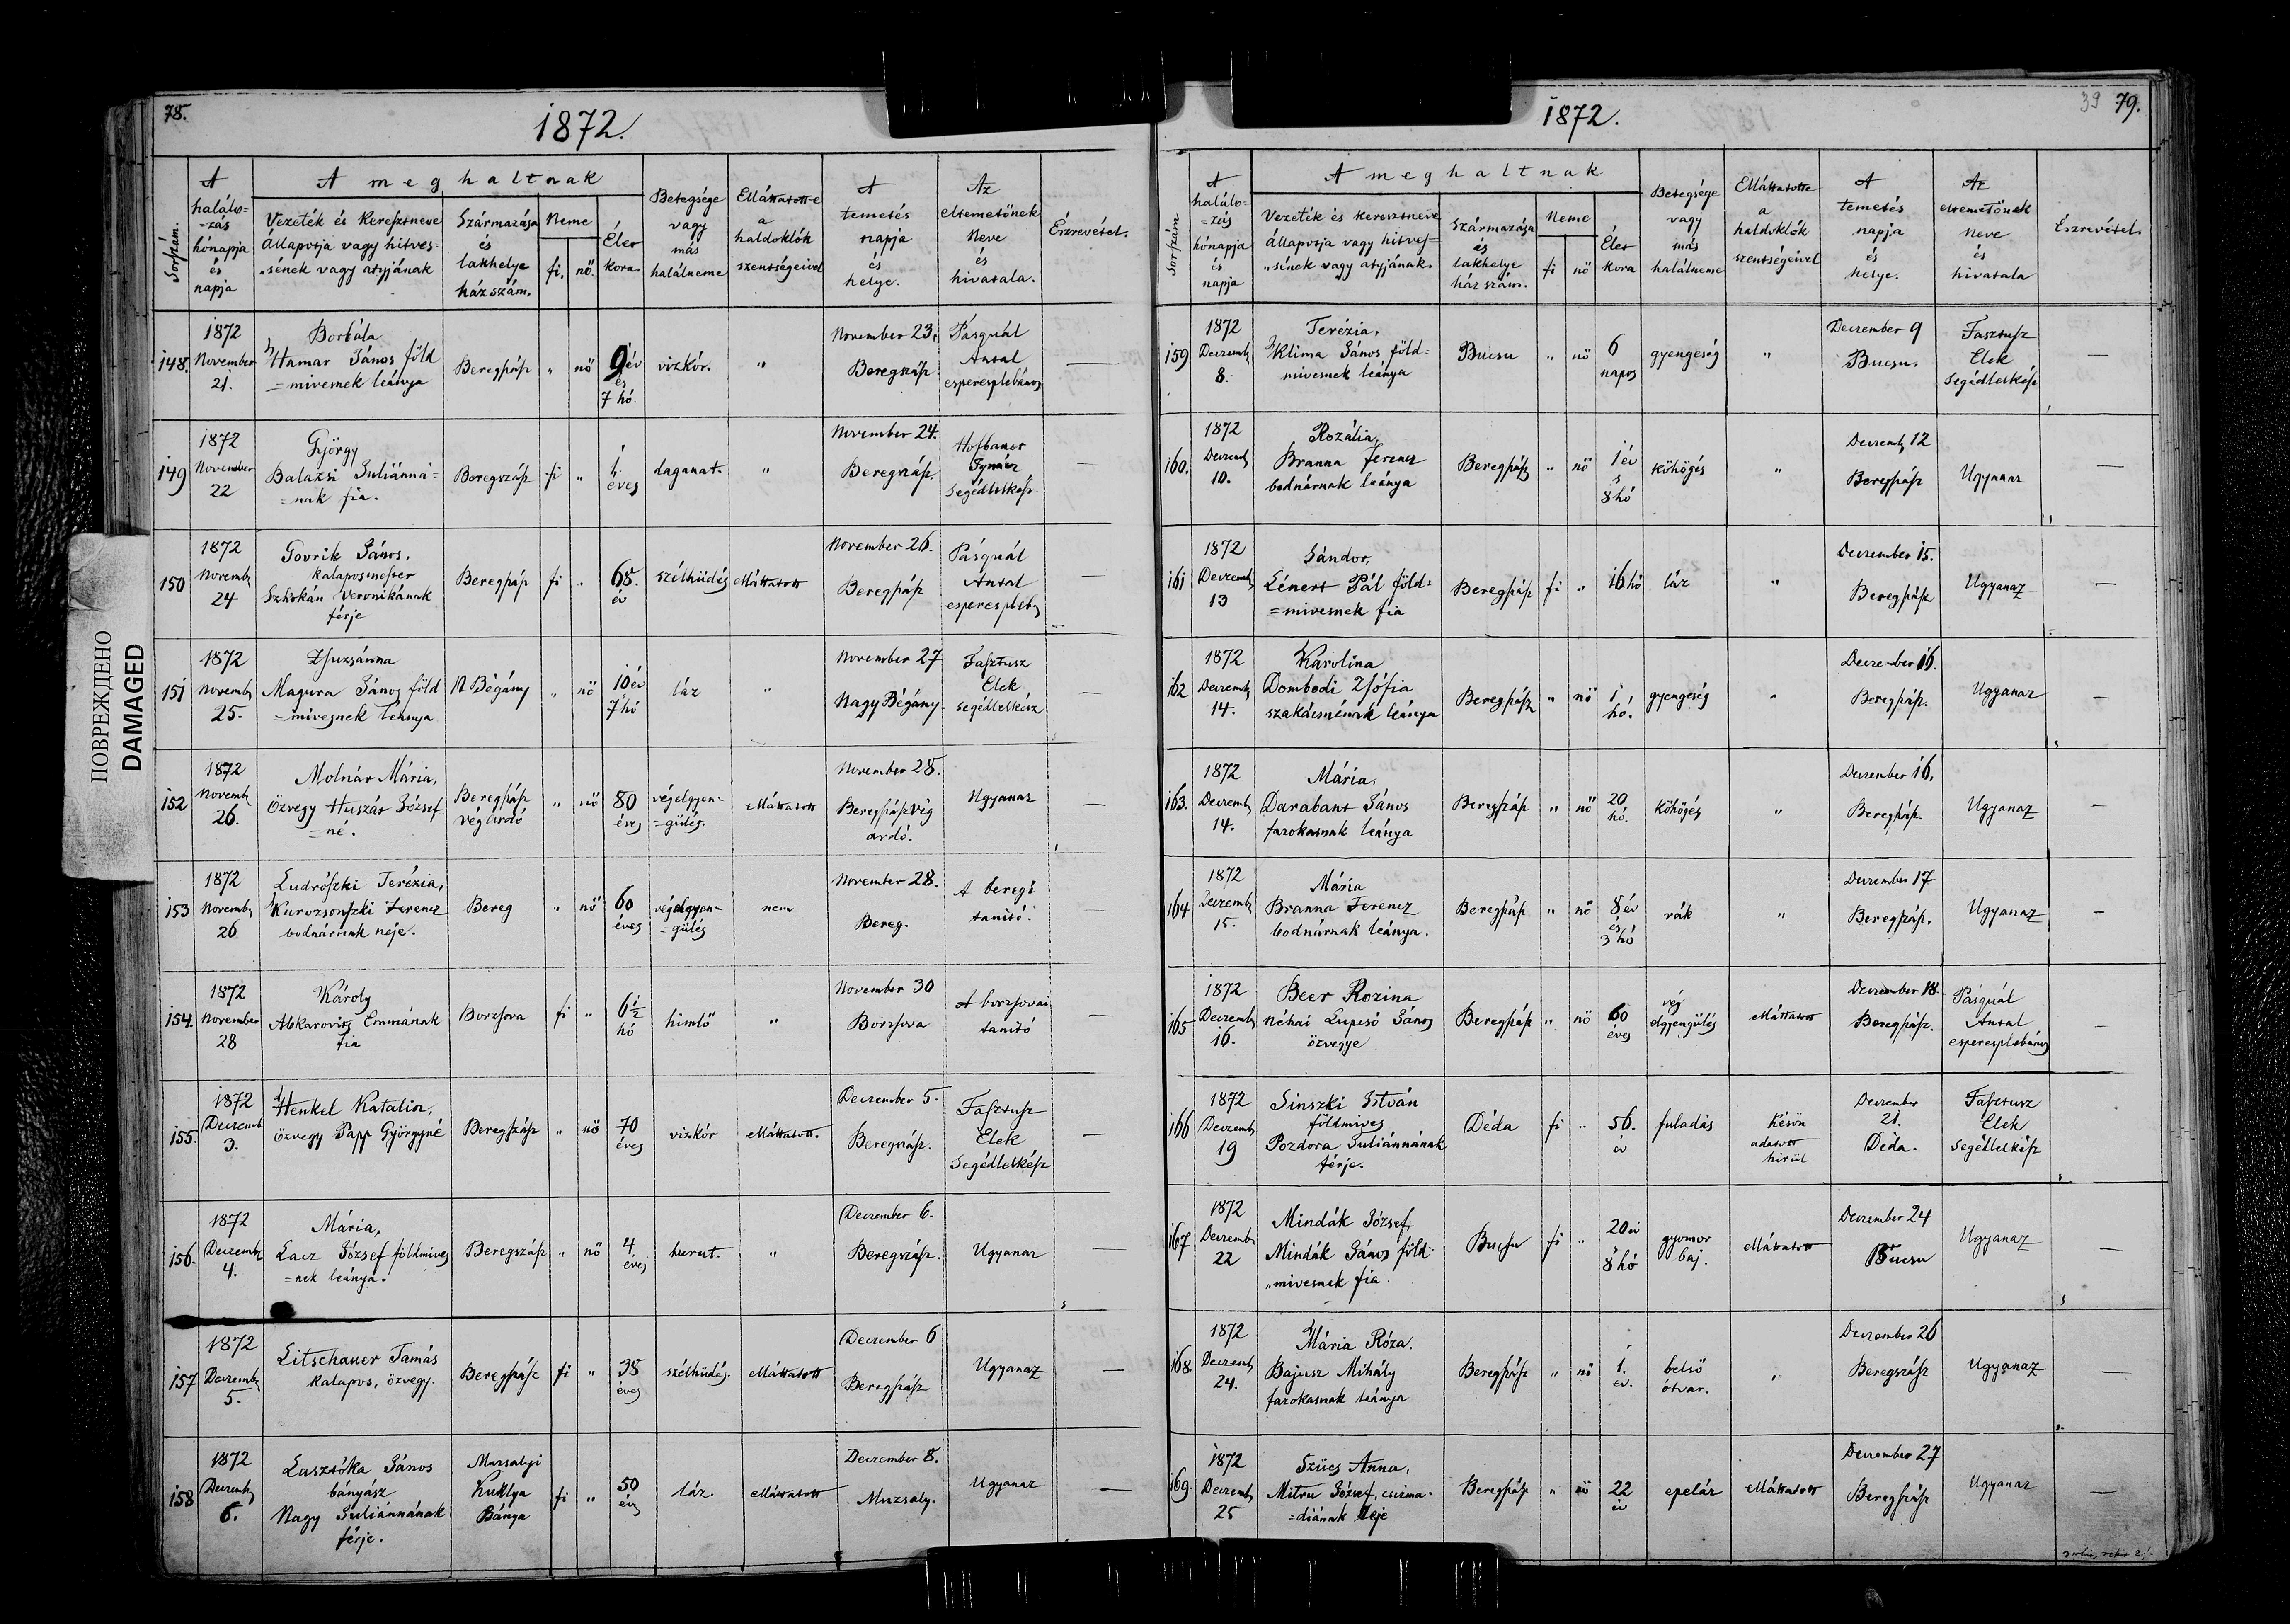 78.
1872.
Sorszám.
A
haláло=
=zás
hónapja
és
napja
A meghaltnak
Vezeték és Keresztneve
Állapotja vagy hitves-
"sének vagy atyjának
Származása
és
lakhelye
házszám.
Neme
fi. nő.
Élet
kora.
Betegsége
vagy
más
halálneme
Elláttatott-e
a
haldoklók
szentségeivel
A
temetés
napja
és
helye.
Az
eltemetőnek
Neve
és
hivatala.
Észrevétel.
148. 1872
November
21.
Borbála
Hamar János föld
=mivesnek leánya
Beregszász " nő 9 év
és
7 hó.
vizkór. "
November 23.
Beregszász
Pásquál
Antal
esperesplébános
—
149 1872
November
22
György
Balazsi Juliánná=
=nak fia.
Beregszász fi "
éves
daganat. "
November 24.
Beregszász.
Hofbauer
Ignácz
Segédlelkész.
—
150 1872
Novemb
24
János,
kalaposmester
Veronikának
férje
Beregszász fi " 65.
év
szélhüdés elláttatott
November 26.
Beregszász
Pásquál
Antal
esperespléb
—
151 1872
Novemb
25.
Zsuzsánna
Magura János föld
=mivesnek leánya
N Bégány " nő 10 év
7 hó
láz "
November 27
Nagy Bégány.
Fasztusz
Elek
segédlelkész
—
152 1872
Novemb
26.
Molnár Mária,
özvegy Huszár József
=né.
Beregszász
Végardó
" nő 80
éves
végelgyen=
=gülés.
elláttatott
November 28.
Beregszász Vég
ardó.
Ugyanaz
—
153 1872
Novemb
26
Ludrószki Terézia,
Ferencz
bodnárnak neje.
Bereg " nő 60
éves
végelgyen=
=gülés
nem
November 28.
Bereg.
A beregi
tanitó.
—
154. 1872
November
28
Károly
Emmának
fia
Borzsova fi " 6½
hó
himlő "
November 30
Borzsova
A borzsovai
tanitó
—
155. 1872
Decemb
3.
Henkel Katalin,
özvegy Papp Györgyné
Beregszász " nő 70
éves
vizkór elláttatott.
December 5.
Beregszász.
Fasztusz
Elek
Segédlelkész
—
156. 1872
Decemb
4.
Mária,
Lacz József földmives
=nek leánya.
Beregszász " nő 4.
éves
hurut. "
December 6.
Beregszász.
Ugyanaz
—
157 1872
Decemb
5.
Litschauer Tamás
kalapos, özvegy.
Beregszász fi " 38
éves
szélhüdés. elláttatott
December 6
Beregszász
Ugyanaz
—
158 1872
Decemb
6.
Lasztóka János
bányász
Nagy Juliánnának
férje.
Muzsalyi
Kuklya
Bánya
fi " 50
év
láz. elláttatott
December 8.
Muzsaly.
Ugyanaz
—
39 79.
1872.
Sorszám
A
halálo=
=zás
hónapja
és
napja
A meghaltnak
Vezeték és keresztneve
állapotja vagy hitves=
"sének vagy atyjának.
Származása
és
lakhelye
házszám.
Neme
fi nő
Élet
kora
Betegsége
vagy
más
halálneme
Elláttatotte
a
haldoklók
szentségeivel
A
temetés
napja
és
helye.
Az
eltemetőnek
neve
és
hivatala
Észrevétel.
159 1872
Decemb
8.
Terézia,
Klima János föld=
mivesnek leánya
Bucsu " nő 6
napos
gyengeség "
December 9
Bucsu.
Fasztusz
Elek
Segédlelkész
—
160. 1872
Decemb
10.
Rozália,
Branna Ferencz
bodnárnak leánya
Beregszász " nő 1 év
s
8 hó
köhögés "
Decemb 12
Beregszász
Ugyanaz
—
161 1872
Decemb
13
Sándor,
Lénert Pál föld=
=mivesnek fia
Beregszász fi " 16 hó láz "
December 15.
Beregszász
Ugyanaz
—
162 1872
Decemb
14.
Karolina
Dombodi Zsófia
szakácsnénak leánya
Beregszász " nő 1
hó.
gyengeség "
December 16.
Beregszász.
Ugyanaz
—
163. 1872
Decemb
14.
Mária,
Darabant János
fazokasnak leánya
Beregszász " nő 20
hó.
köhögés "
December 16.
Beregszász.
Ugyanaz
—
164 1872
Decemb
15.
Mária
Branna Ferencz
bodnárnak leánya.
Beregszász " nő 8 év
és
3 hó
rák "
December 17
Beregszász.
Ugyanaz
—
165 1872
Decemb
16.
Beer Rozina
néhai Lupcsó János
özvegye
Beregszász " nő 60
éves
vég
elgyengülés
elláttatott
December 18.
Beregszász.
Pásquál
Antal
esperesplébános
—
166 1872
Decemb
19
Sinszki István
földmives
Pozdora Juliánnának
férje.
Déda fi " 56.
év
fuladás
késön
adatott
hirül
December
21.
Déda.
Fasztusz
Elek
Segédlelkész
167 1872
Decemb
22
Mindák József,
Mindák János föld=
"mivesnek fia.
Bucsu fi " 20 év
s
8 hó
gyomor
baj.
elláttatott
December 24
Bucsu
Ugyanaz
—
168. 1872
Decemb
24.
Mária Róza.
Bajusz Mihály
fazokasnak leánya
Beregszász " nő 1.
év.
belső
ótvar.
"
December 26
Beregszász
Ugyanaz
—
169. 1872
Decemb
25
Szücs Anna,
Mitru József, csizma=
=diának neje
Beregszász " nő 22
év
epeláz elláttatott
December 27
Beregszász
Ugyanaz
—
ПОВРЕЖДЕНО
DAMAGED